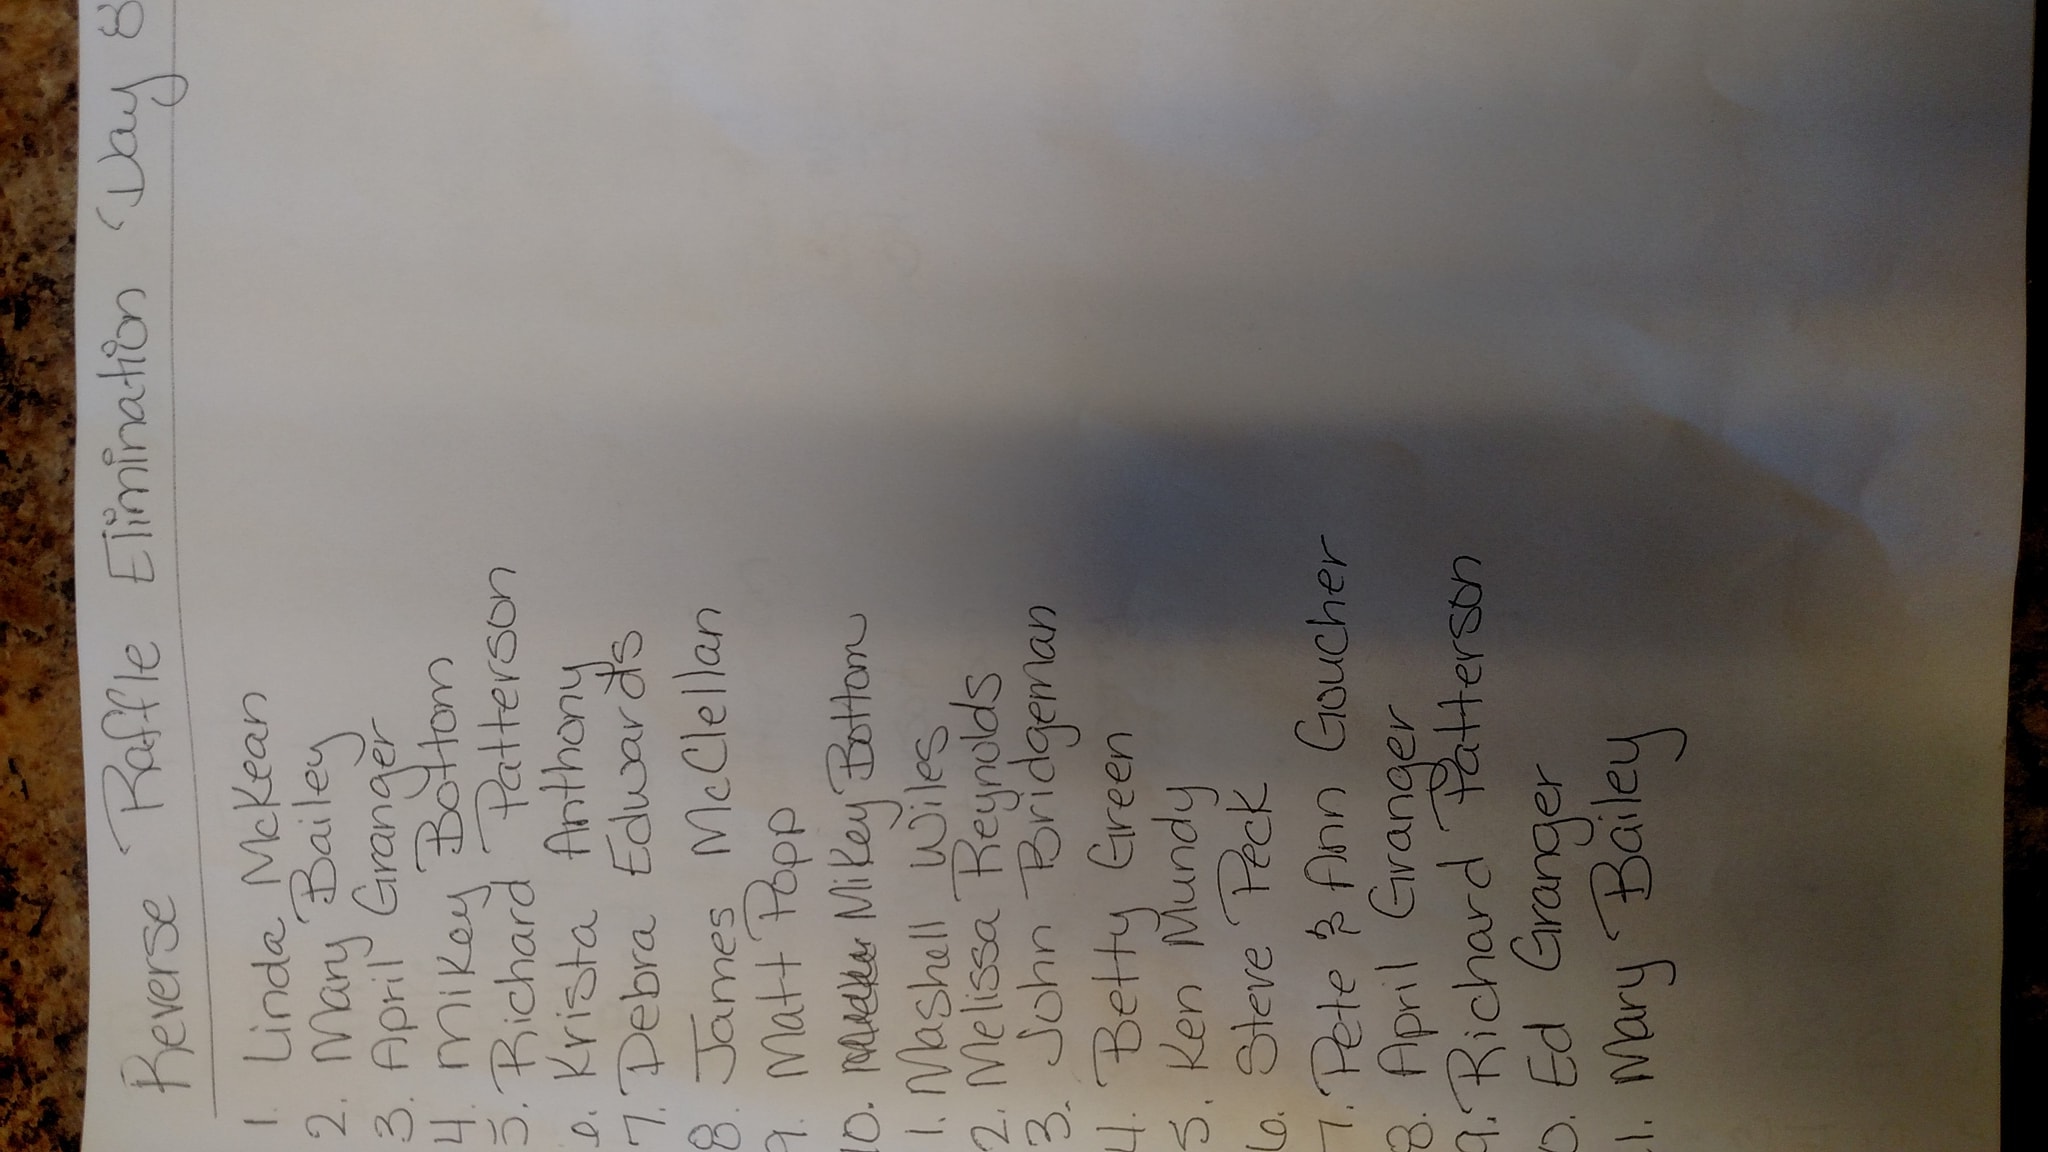 Reverse Raffle Elimination Day 8
1. Linda McKean
2. Mary Bailey
3. April Granger
4. Mikey Bottom
5. Richard Patterson
6. Krista Anthony
7. Debra Edwards
8. James McClellan
9. Matt Popp
10. Mikey Bottom
1. Mashell Wiles
2. Melissa Reynolds
3. John Bridgeman
4. Betty Green
5. Ken Mundy
6. Steve Peck
7. Pete & Ann Goucher
8. April Granger
9. Richard Patterson
0. Ed Granger
1. Mary Bailey